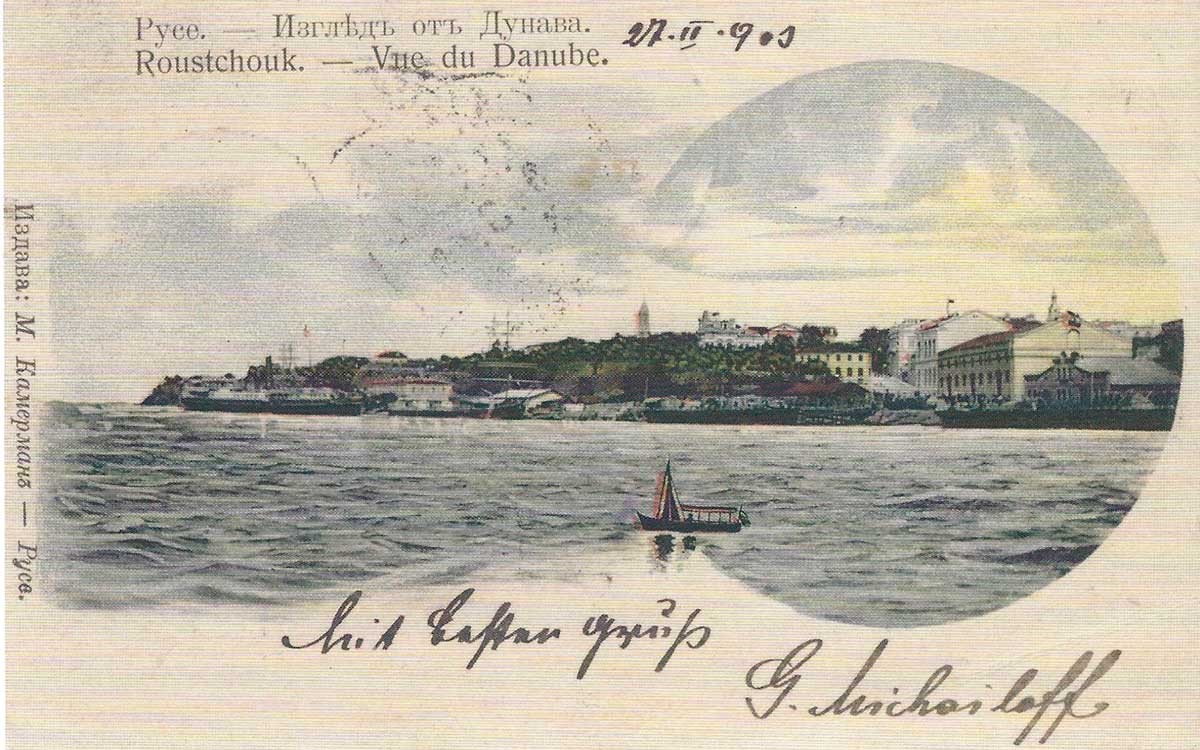 Русе. — Изглѣдъ отъ Дунава. 27·II·903
Roustchouk. — Vue du Danube.
Издава: М. Камерманъ — Русе.
Mit besten Gruß
G. Michailoff